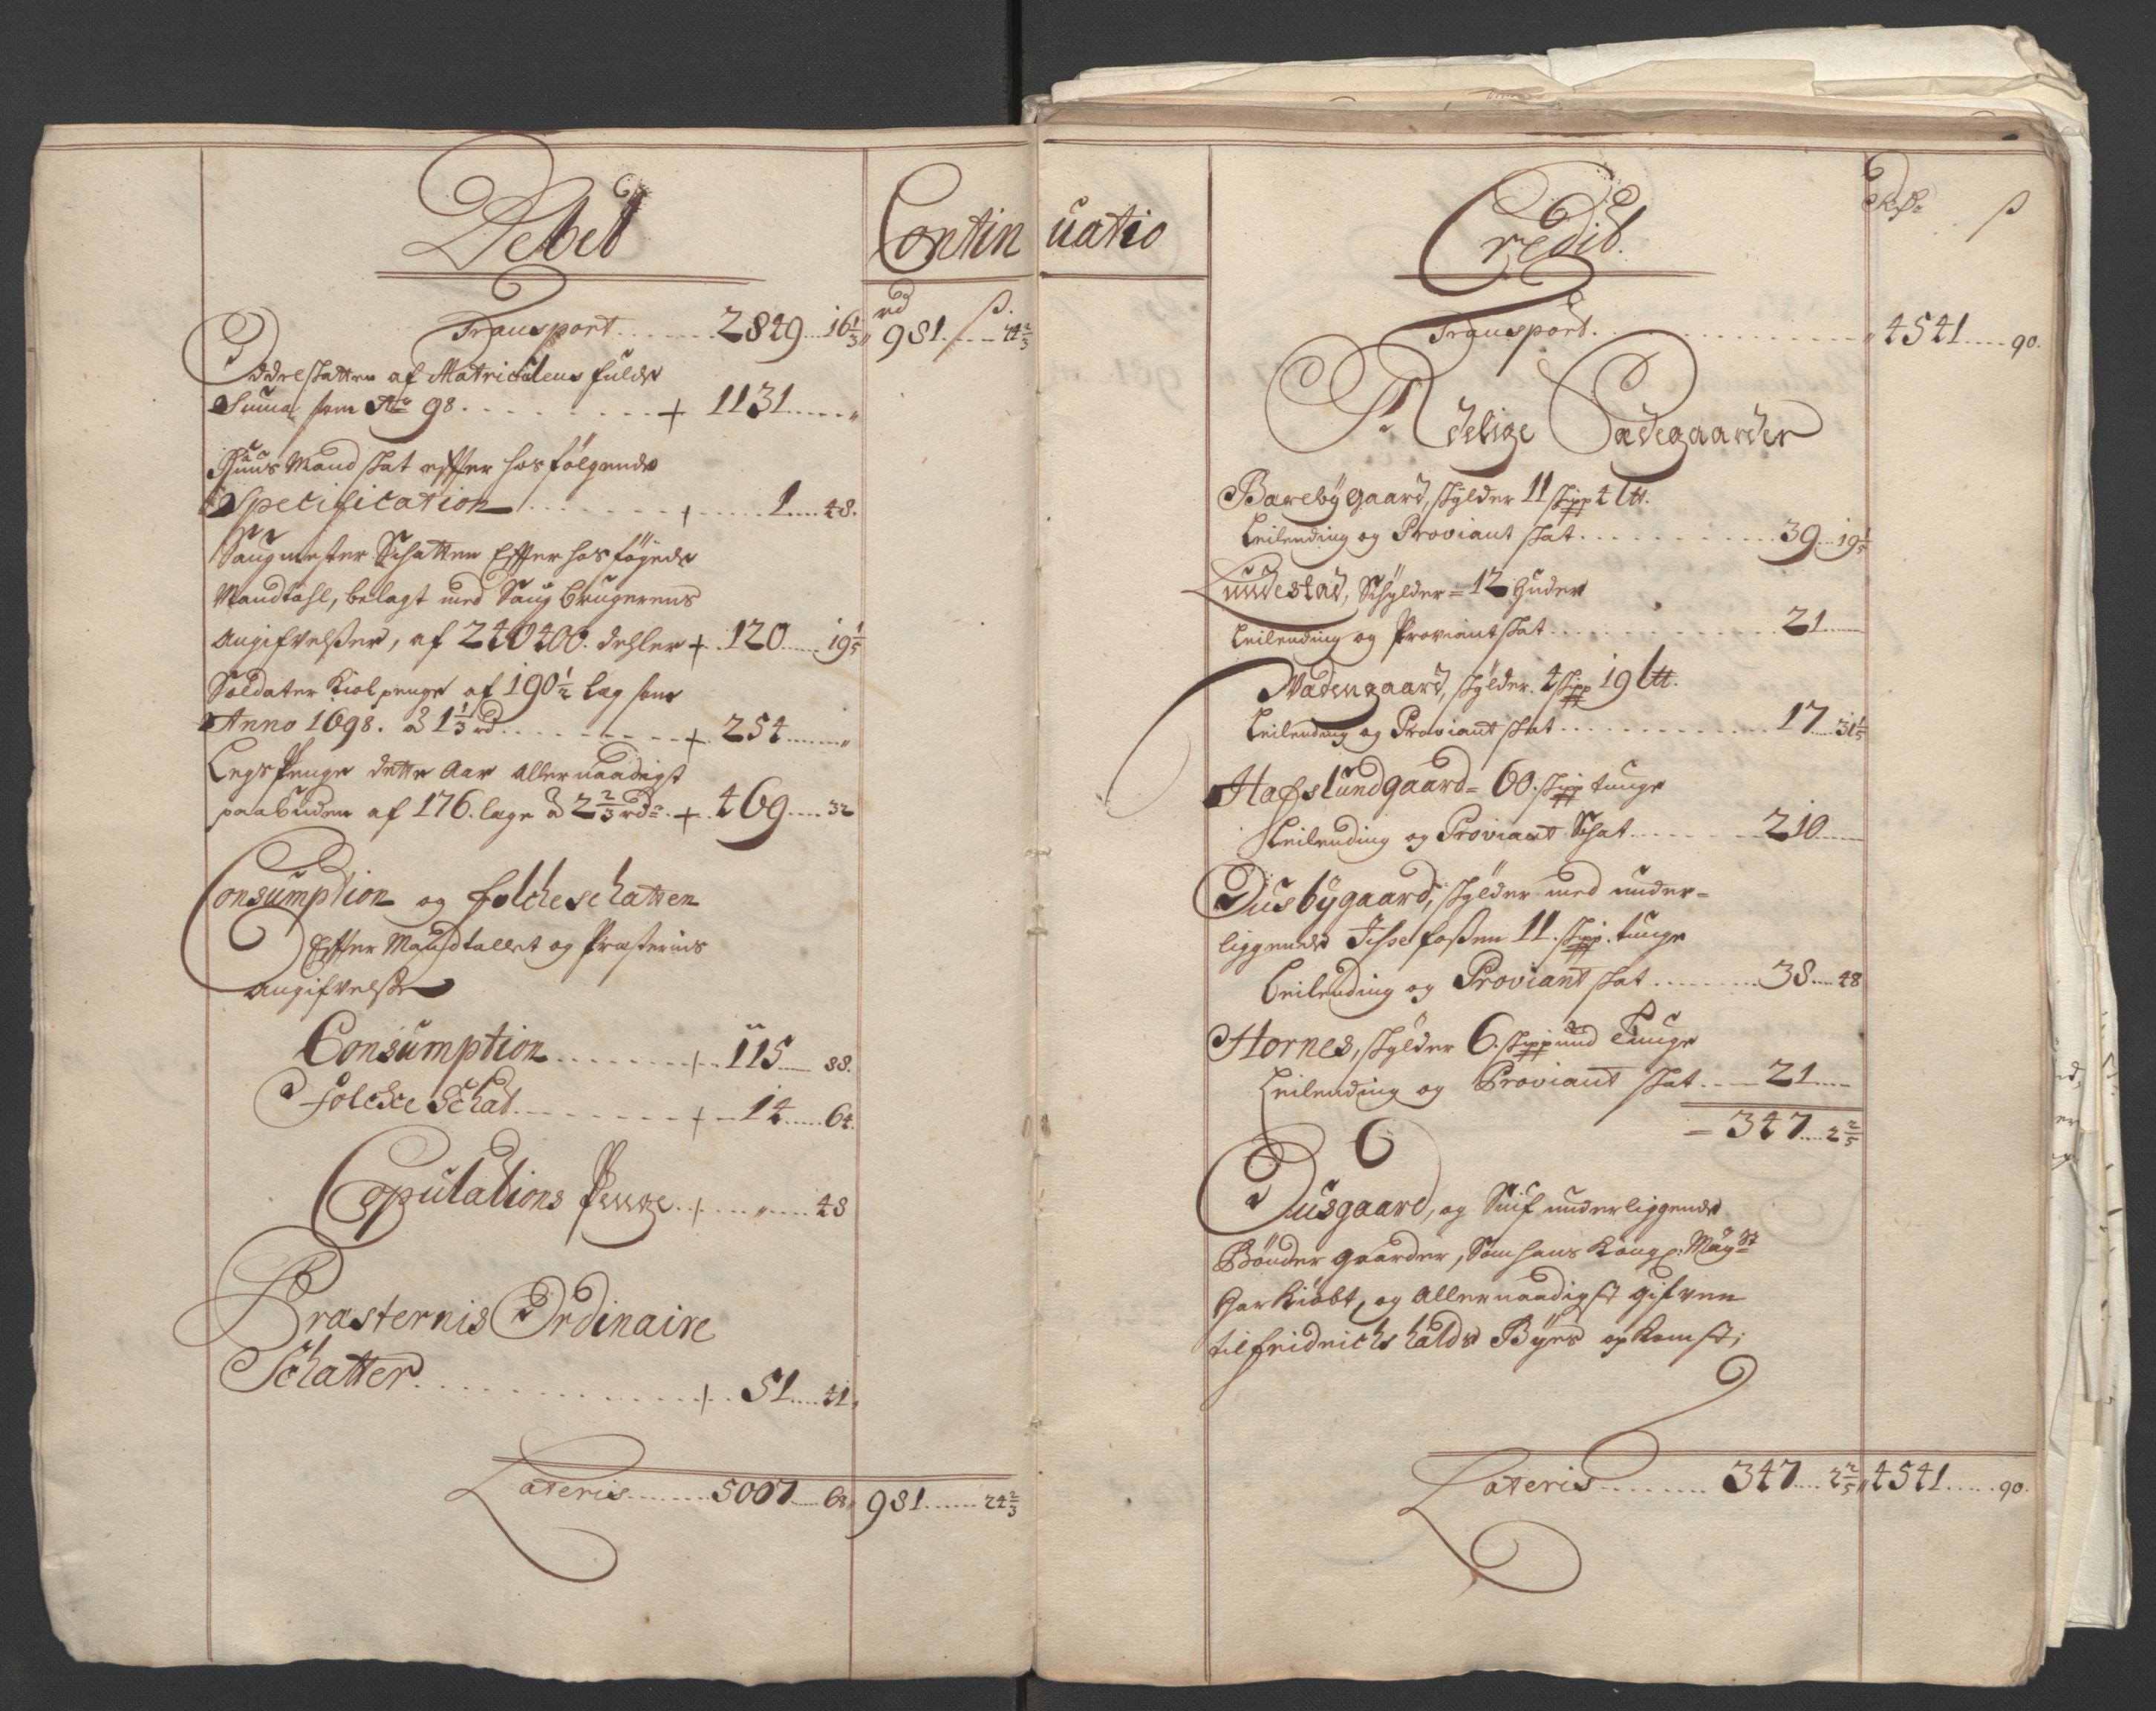 Debet
Contin
rd ß.
Transport 2849 16 1/3 981 24 2/3
Oddelskatten af Matriculens fulde
Suma som Ao 98 + 1131 "
Huus Mand skat effter hos følgende
Specification + 1 48.
Saugmester Schatten Effter hos føyede
Mandtahl, belagt med Saugbrugerens
Angifvelsser, af 240400 dehler + 120 19 1/5
Soldater Kiolpenge af 190 1/2 læg som
Anno 1698. à 1 1/3 rd + 254 "
Legs Penge dette Aar Allernaadigst
paabuden af 176. læge à 2 2/3 rdr + 469 32
Consumption og folcheschatten
Effter Mandtallet og Præsternis
Angifvelsse
Consumption + 115 88.
Folcke Schat + 14 64.
Copulations Penge + " 48
Præsternis Ordinaire
Schatter + 51 41
Lateris 5007 68 981 24 2/3
uatio
Credit.
ß
Transport 4541 90.
Adelige Sædegaarder
Barebÿgaard, skylder 11 skipp 4 Ltt.
Leilending og Proviant skat 39 19 1/5
Lundestad, Schylder = 12 Huder
Leilending og Proviant skat 21
Wadengaard, skylder. 4 skipp 19 Ltt.
Leilending og Proviant skat 17 31 1/5
Hafslundgaard = 60. skipp tunge
Leilending og Proviant Schat 210
Dusbÿgaard, skylder med under-
liggende fossen 11. skipp. tunge
Leilending og Proviant skat 38 48
Hornes, skylder 6. skippund Tunge
Leilending og Proviant skat 21
= 347 2 2/5
Dusgaard, og underliggende
Bønder gaarder, Som hans Kongl. Mayst
har kiøbt, og Allernaadigst gifven
til fridrichshalds Byes opkomst;
Lateris 347 2 2/5 4541 90.